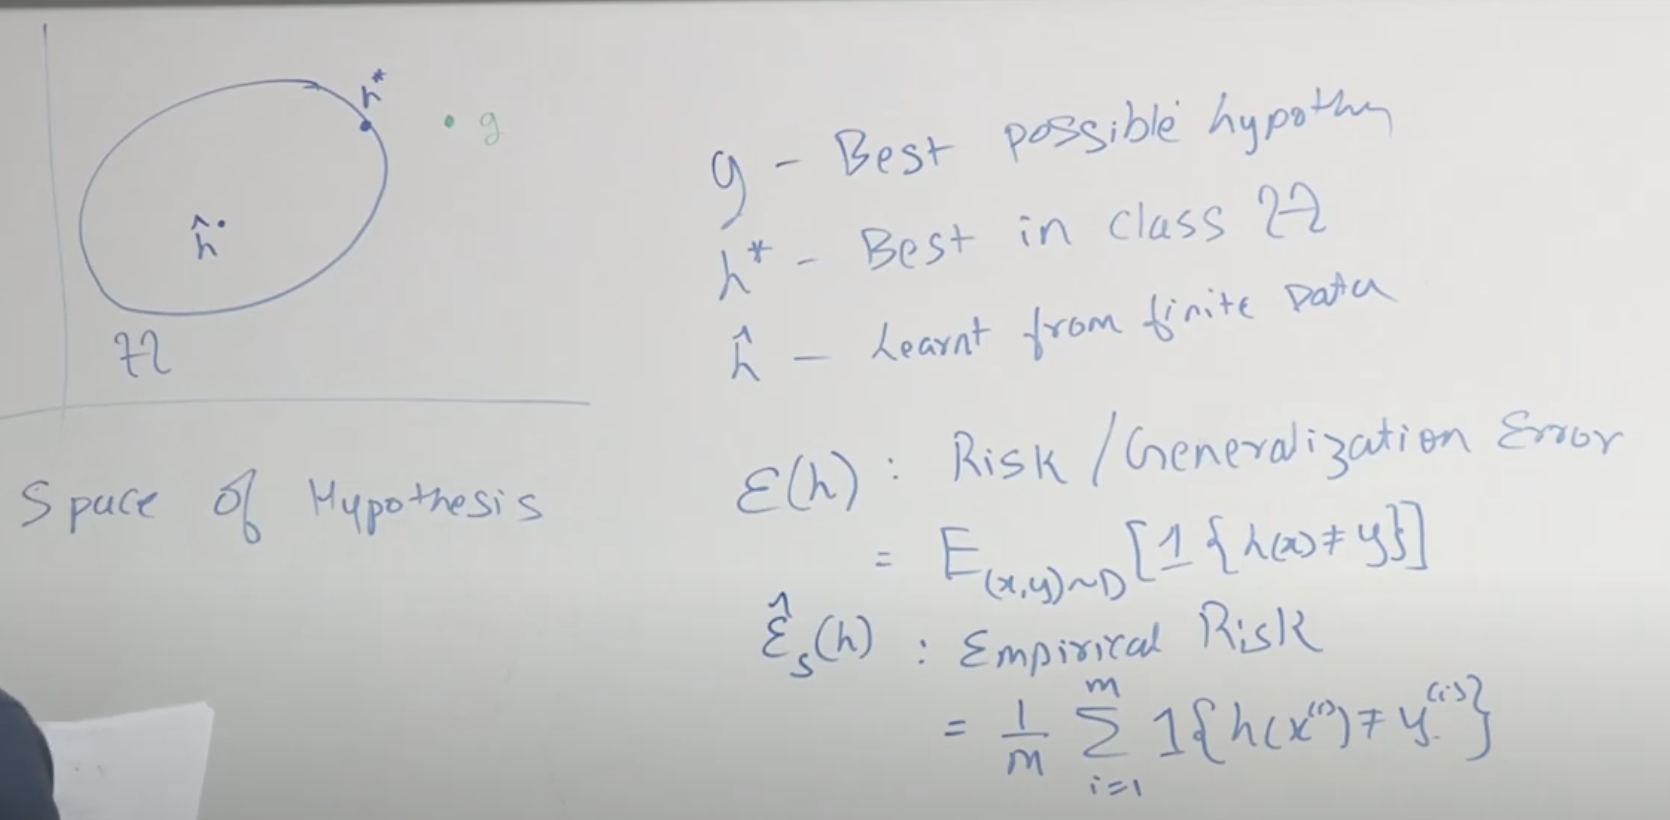 h*
g
ĥ
ℋ
Space of Hypothesis
g - Best possible hypothy
h* - Best in class ℋ
ĥ - Learnt from finite Data
ε(h) : Risk / Generalization Error
= E_(x,y)~D [1{h(x) ≠ y}]
ε̂_S(h) : Empirical Risk
= 1/m Σ_{i=1}^{m} 1{h(x^(i)) ≠ y^(i)}